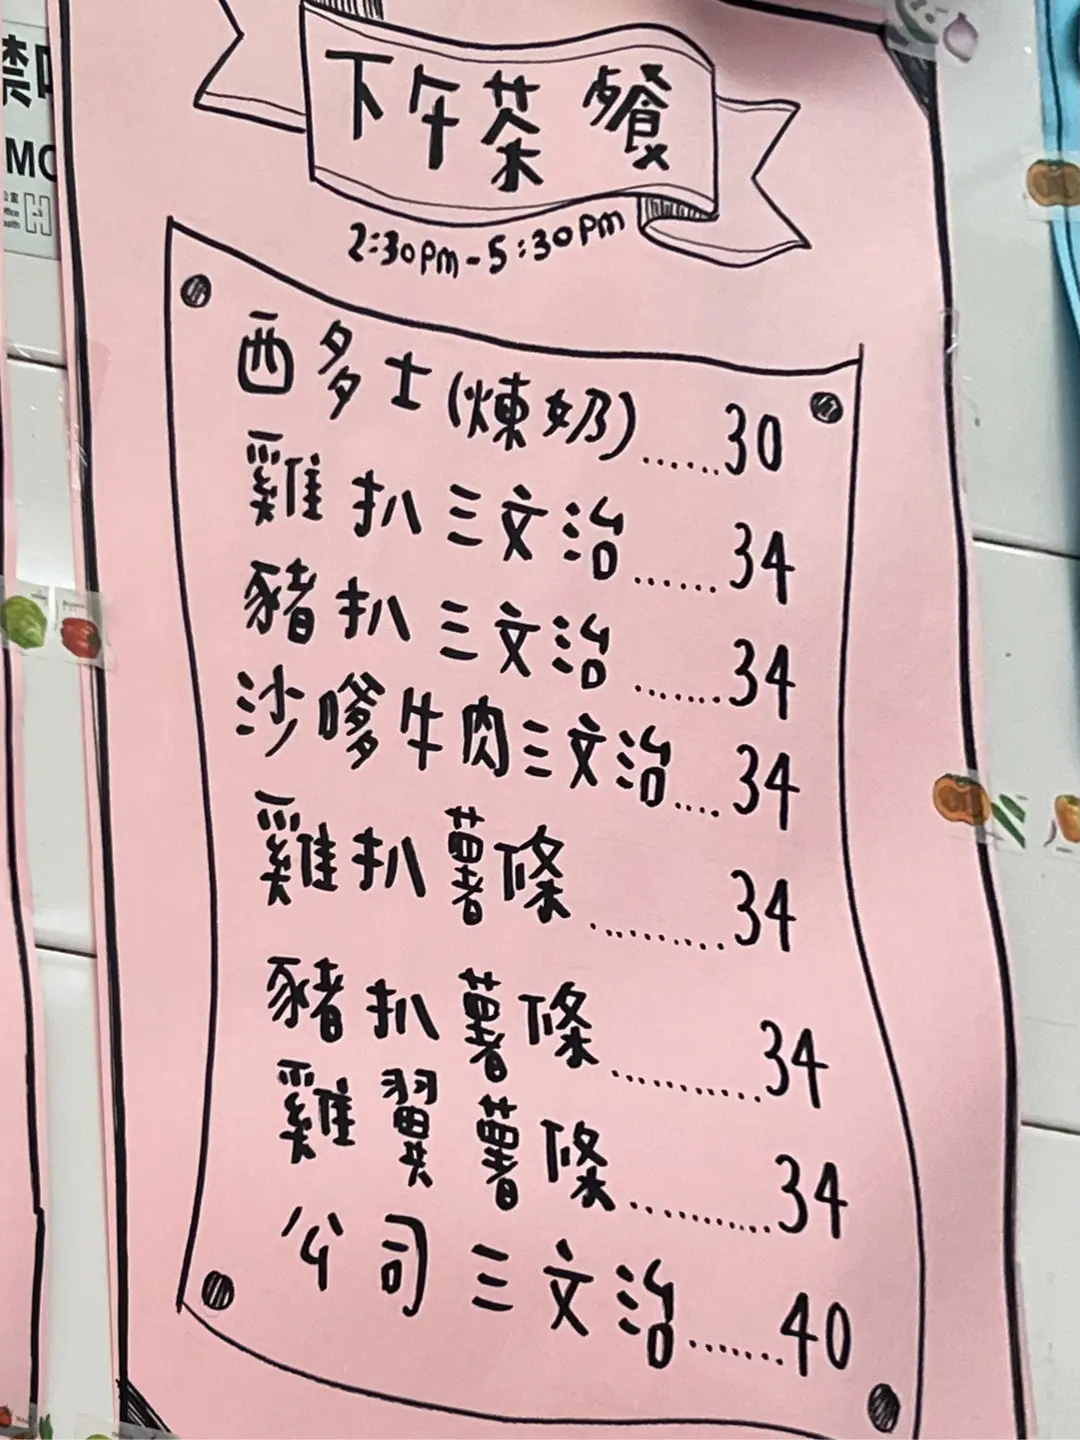 禁
MO
下午茶餐
2:30pm-5:30pm
西多士(煉奶)......30
雞扒三文治......34
豬扒三文治.......34
沙嗲牛肉三文治....34
雞扒薯條..........34
豬扒薯條...........34
雞翼薯條..........34
公司三文治.......40